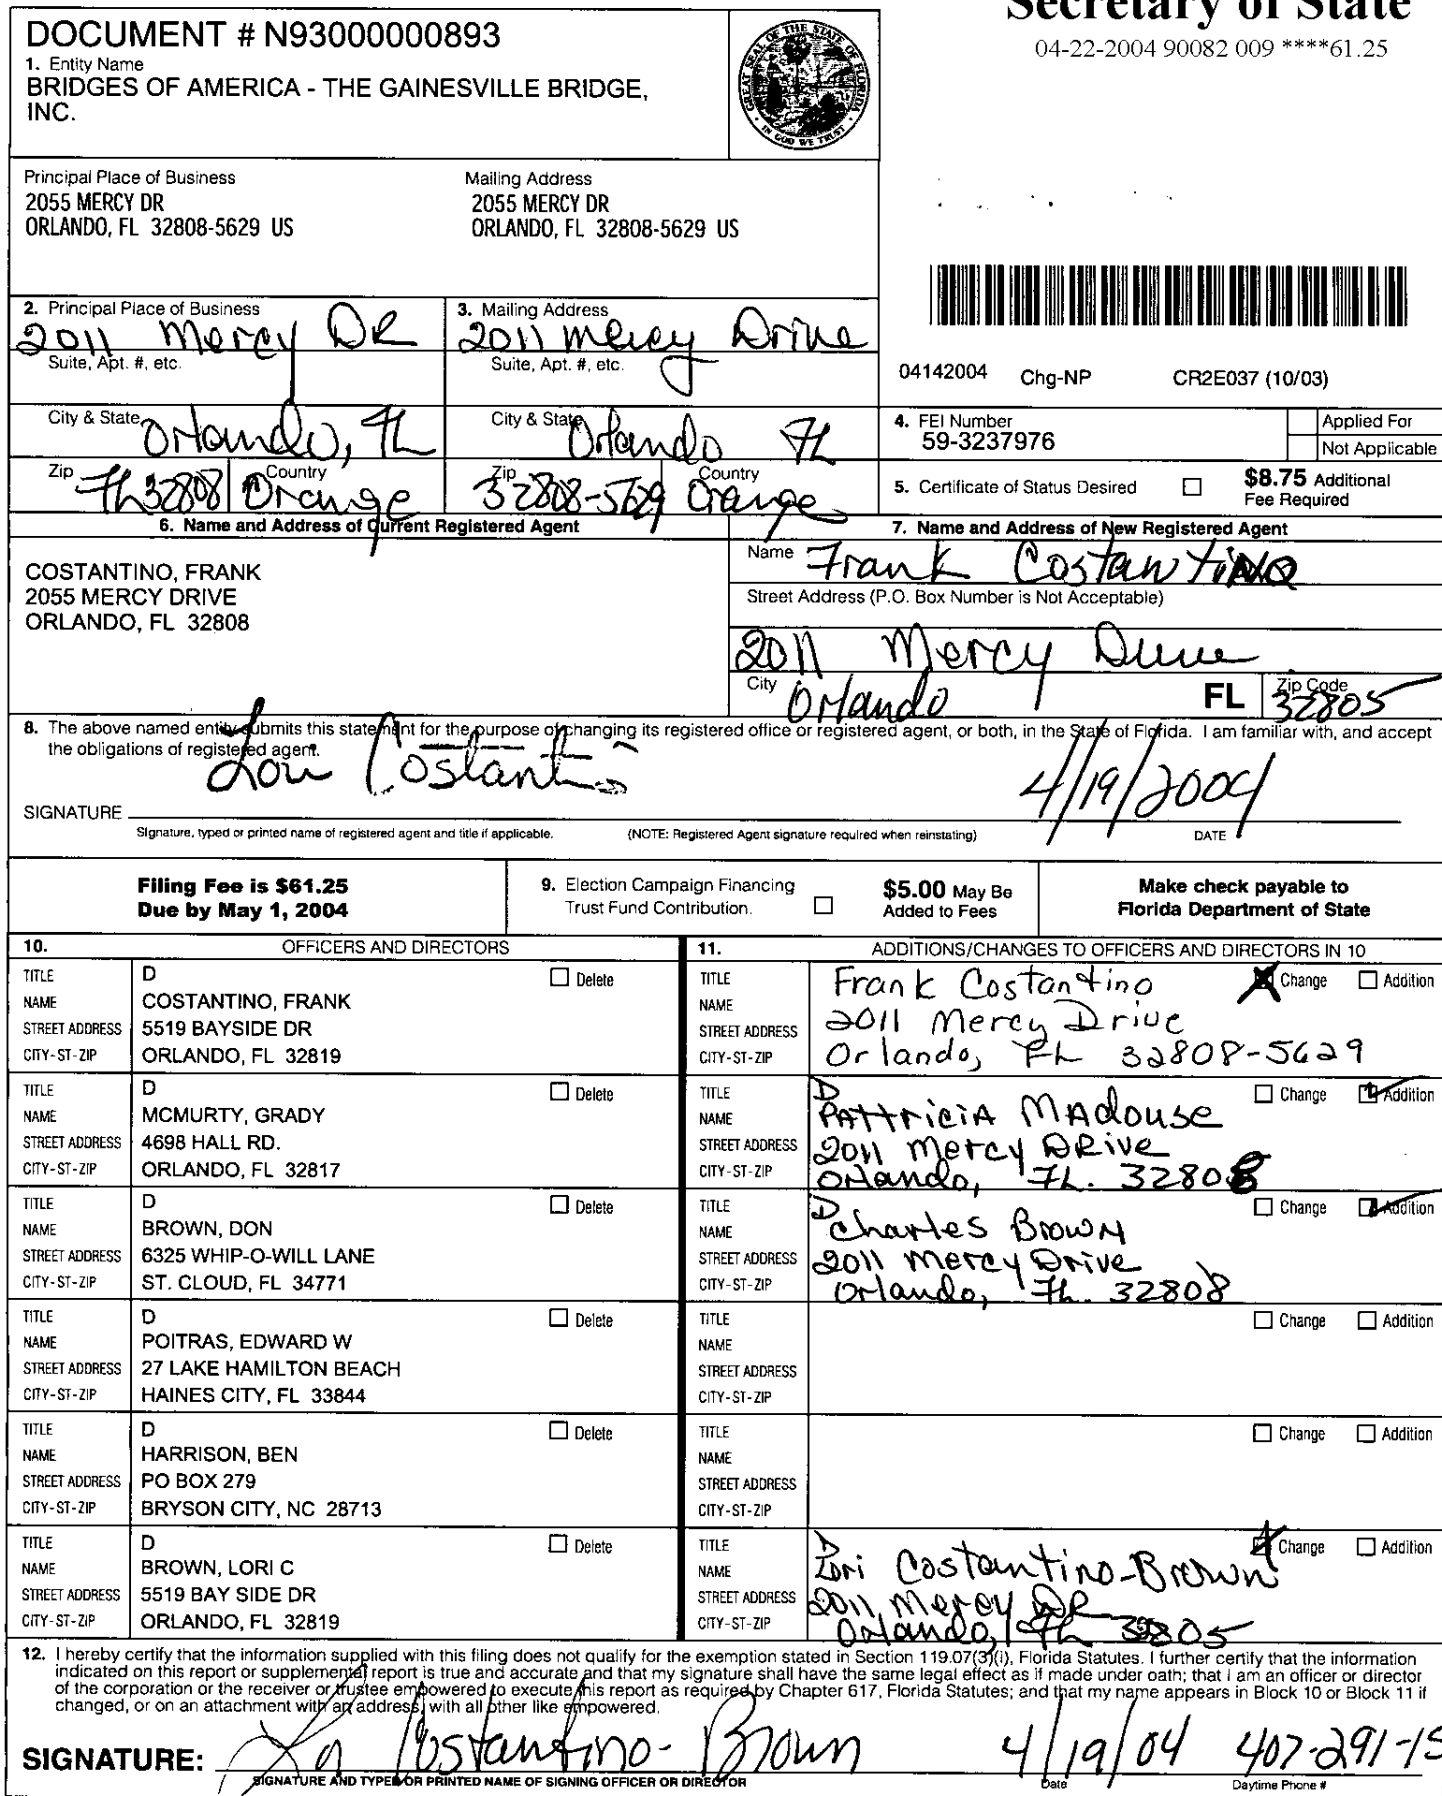 Secretary of State
04-22-2004 90082 009 ****61.25
DOCUMENT # N93000000893
1. Entity Name
BRIDGES OF AMERICA - THE GAINESVILLE BRIDGE,
INC.
GREAT SEAL OF THE STATE OF FLORIDA
IN GOD WE TRUST
Principal Place of Business
2055 MERCY DR
ORLANDO, FL 32808-5629 US
Mailing Address
2055 MERCY DR
ORLANDO, FL 32808-5629 US
2. Principal Place of Business
2011 Mercy DR
Suite, Apt. #, etc.
City & State
Orlando, FL
Zip
FL 32808
Country
Orange
3. Mailing Address
2011 Mercy Drive
Suite, Apt. #, etc.
City & State
Orlando FL
Zip
32808-5629
Country
Orange
04142004 Chg-NP CR2E037 (10/03)
4. FEI Number
59-3237976
Applied For
Not Applicable
5. Certificate of Status Desired
$8.75 Additional
Fee Required
6. Name and Address of Current Registered Agent
COSTANTINO, FRANK
2055 MERCY DRIVE
ORLANDO, FL 32808
7. Name and Address of New Registered Agent
Name Frank Costantino
Street Address (P.O. Box Number is Not Acceptable)
2011 Mercy Drive
City Orlando FL Zip Code 32805
8. The above named entity submits this statement for the purpose of changing its registered office or registered agent, or both, in the State of Florida. I am familiar with, and accept
the obligations of registered agent.
SIGNATURE Lori Costantino 4/19/2004
Signature, typed or printed name of registered agent and title if applicable. (NOTE: Registered Agent signature required when reinstating) DATE
Filing Fee is $61.25
Due by May 1, 2004
9. Election Campaign Financing
Trust Fund Contribution.
$5.00 May Be
Added to Fees
Make check payable to
Florida Department of State
10. OFFICERS AND DIRECTORS
TITLE D Delete
NAME COSTANTINO, FRANK
STREET ADDRESS 5519 BAYSIDE DR
CITY-ST-ZIP ORLANDO, FL 32819
TITLE D Delete
NAME MCMURTY, GRADY
STREET ADDRESS 4698 HALL RD.
CITY-ST-ZIP ORLANDO, FL 32817
TITLE D Delete
NAME BROWN, DON
STREET ADDRESS 6325 WHIP-O-WILL LANE
CITY-ST-ZIP ST. CLOUD, FL 34771
TITLE D Delete
NAME POITRAS, EDWARD W
STREET ADDRESS 27 LAKE HAMILTON BEACH
CITY-ST-ZIP HAINES CITY, FL 33844
TITLE D Delete
NAME HARRISON, BEN
STREET ADDRESS PO BOX 279
CITY-ST-ZIP BRYSON CITY, NC 28713
TITLE D Delete
NAME BROWN, LORI C
STREET ADDRESS 5519 BAY SIDE DR
CITY-ST-ZIP ORLANDO, FL 32819
11. ADDITIONS/CHANGES TO OFFICERS AND DIRECTORS IN 10
TITLE Change Addition
NAME Frank Costantino
STREET ADDRESS 2011 Mercy Drive
CITY-ST-ZIP Orlando, FL 32808-5629
TITLE D Change Addition
NAME PATTriciA MAdouse
STREET ADDRESS 2011 Mercy DRive
CITY-ST-ZIP Orlando, FL. 32808
TITLE D Change Addition
NAME Charles Brown
STREET ADDRESS 2011 Mercy Drive
CITY-ST-ZIP Orlando, FL. 32808
TITLE Change Addition
NAME
STREET ADDRESS
CITY-ST-ZIP
TITLE Change Addition
NAME
STREET ADDRESS
CITY-ST-ZIP
TITLE D Change Addition
NAME Lori Costantino-Brown
STREET ADDRESS 2011 Mercy DR
CITY-ST-ZIP Orlando, FL 32805
12. I hereby certify that the information supplied with this filing does not qualify for the exemption stated in Section 119.07(3)(i), Florida Statutes. I further certify that the information
indicated on this report or supplemental report is true and accurate and that my signature shall have the same legal effect as if made under oath; that I am an officer or director
of the corporation or the receiver or trustee empowered to execute this report as required by Chapter 617, Florida Statutes; and that my name appears in Block 10 or Block 11 if
changed, or on an attachment with an address, with all other like empowered.
SIGNATURE: Lori Costantino-Brown 4/19/04 407-291-15
SIGNATURE AND TYPED OR PRINTED NAME OF SIGNING OFFICER OR DIRECTOR Date Daytime Phone #